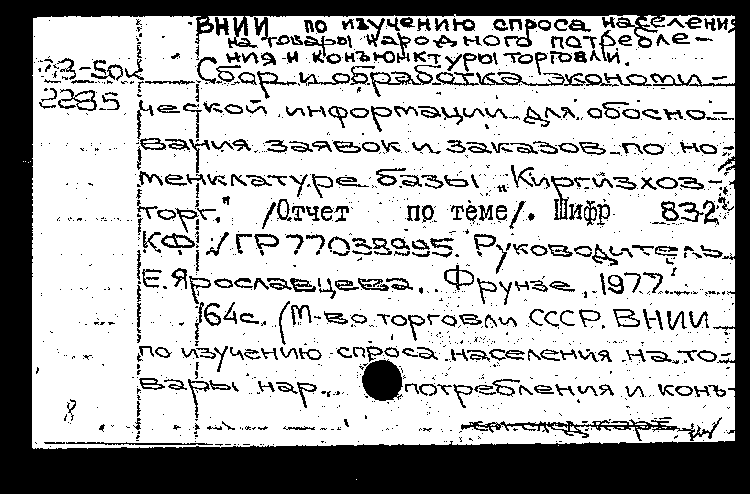 ВНИИ по изучению спроса населения
на товары народного потребле-
ния и конъюнктуры торговли.
Сбор и обработка экономи-
2285 ческой информации для обосно-
вания заявок и заказов по но-
менклатуре базы „Киргизхоз-
торг." /Отчет по теме/. Шифр 832
КФ ГР77038995. Руководитель
Е. Ярославцева. Фрунзе, 1977
164с. (М-во торговли СССР. ВНИИ
по изучению спроса населения на то-
вары нар. потребления и конъ-
8